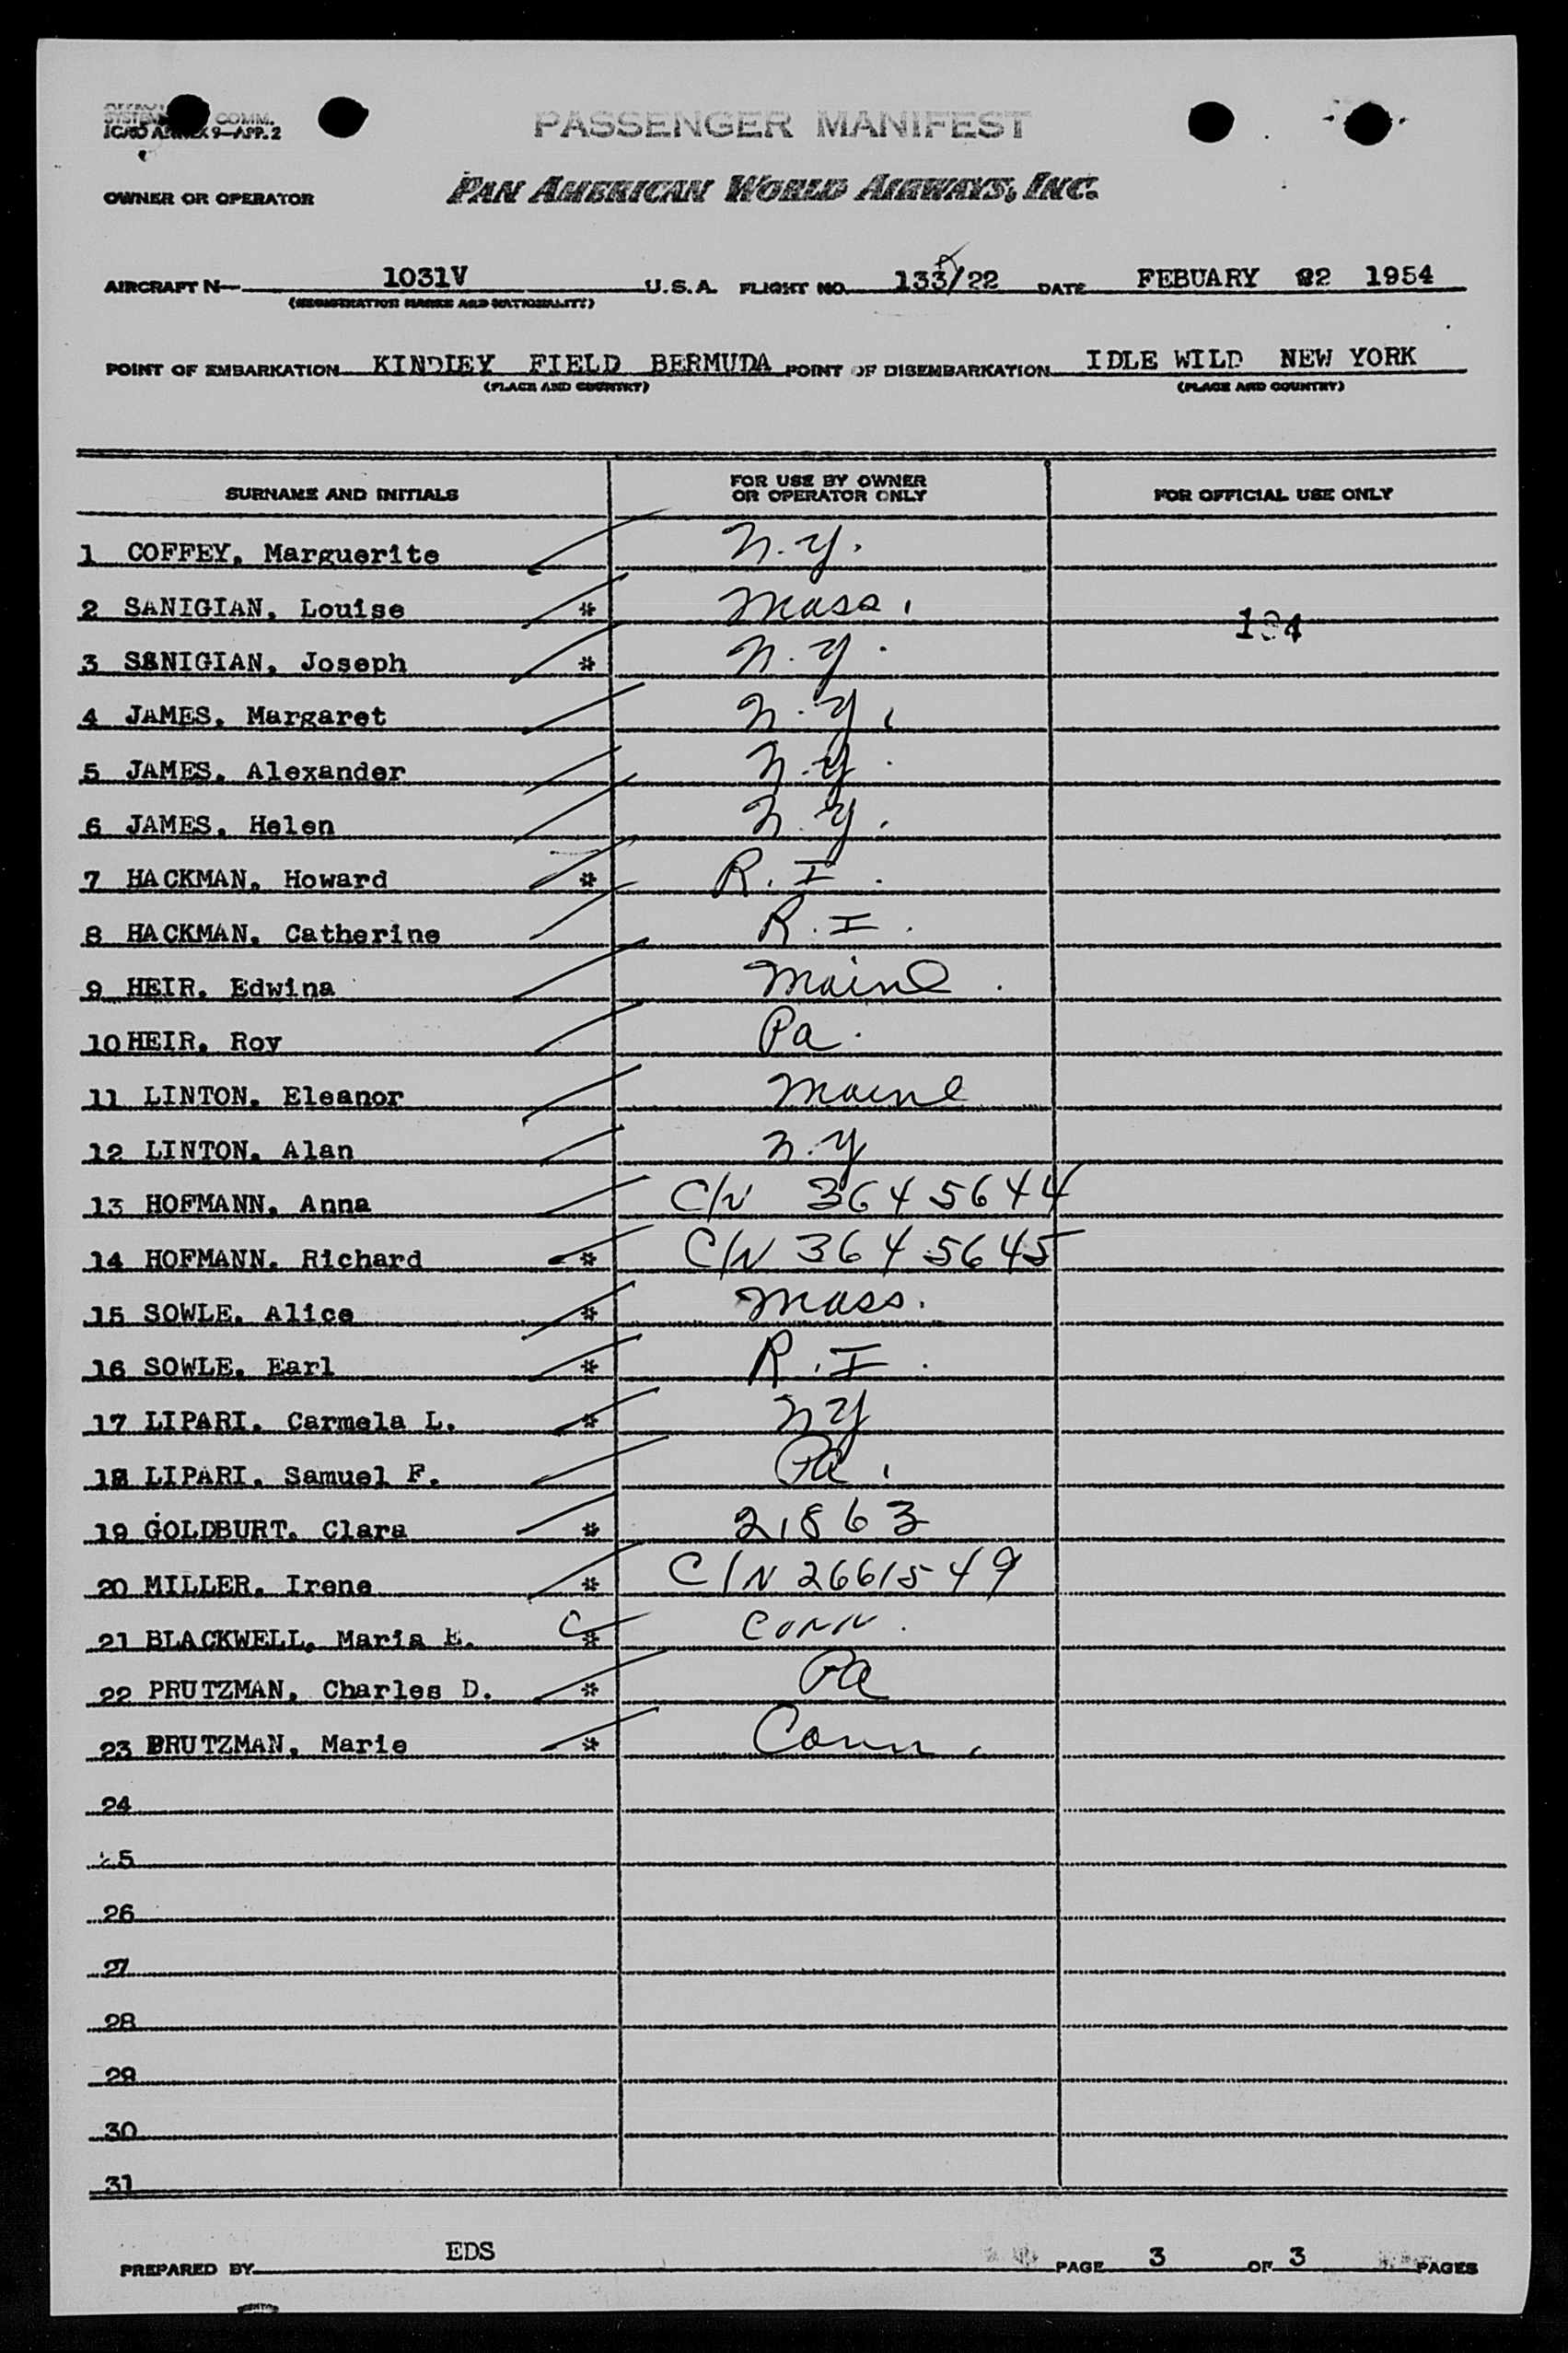 SYSTEM COMM.
ICAO ANNEX 9—APP. 2
PASSENGER MANIFEST
OWNER OR OPERATOR PAN AMERICAN WORLD AIRWAYS, INC.
AIRCRAFT N— 1031V U.S.A. FLIGHT NO. 133/22 DATE FEBUARY 22 1954
(REGISTRATION MARKS AND NATIONALITY)
POINT OF EMBARKATION KINDLEY FIELD BERMUDA POINT OF DISEMBARKATION IDLE WILD NEW YORK
(PLACE AND COUNTRY) (PLACE AND COUNTRY)
SURNAME AND INITIALS FOR USE BY OWNER OR OPERATOR ONLY FOR OFFICIAL USE ONLY
1 COFFEY, Marguerite N.Y.
2 SANIGIAN, Louise * Mass.
3 SANIGIAN, Joseph * N.Y.
4 JAMES, Margaret N.Y.
5 JAMES, Alexander N.Y.
6 JAMES, Helen N.Y.
7 HACKMAN, Howard * R.I.
8 HACKMAN, Catherine R.I.
9 HEIR, Edwina Maine.
10 HEIR, Roy Pa.
11 LINTON, Eleanor Maine
12 LINTON, Alan N.Y
13 HOFMANN, Anna C/N 3645644
14 HOFMANN, Richard * C/N 3645645
15 SOWLE, Alice * Mass.
16 SOWLE, Earl * R.I.
17 LIPARI, Carmela L. * NY
18 LIPARI, Samuel F. Pa.
19 GOLDBURT, Clara * 21863
20 MILLER, Irene * C/N 2661549
21 BLACKWELL, Maria E. C * CONN.
22 PRUTZMAN, Charles D. * Pa
23 PRUTZMAN, Marie * Conn.
24
25
26
27
28
29
30
31
PREPARED BY EDS PAGE 3 OF 3 PAGES